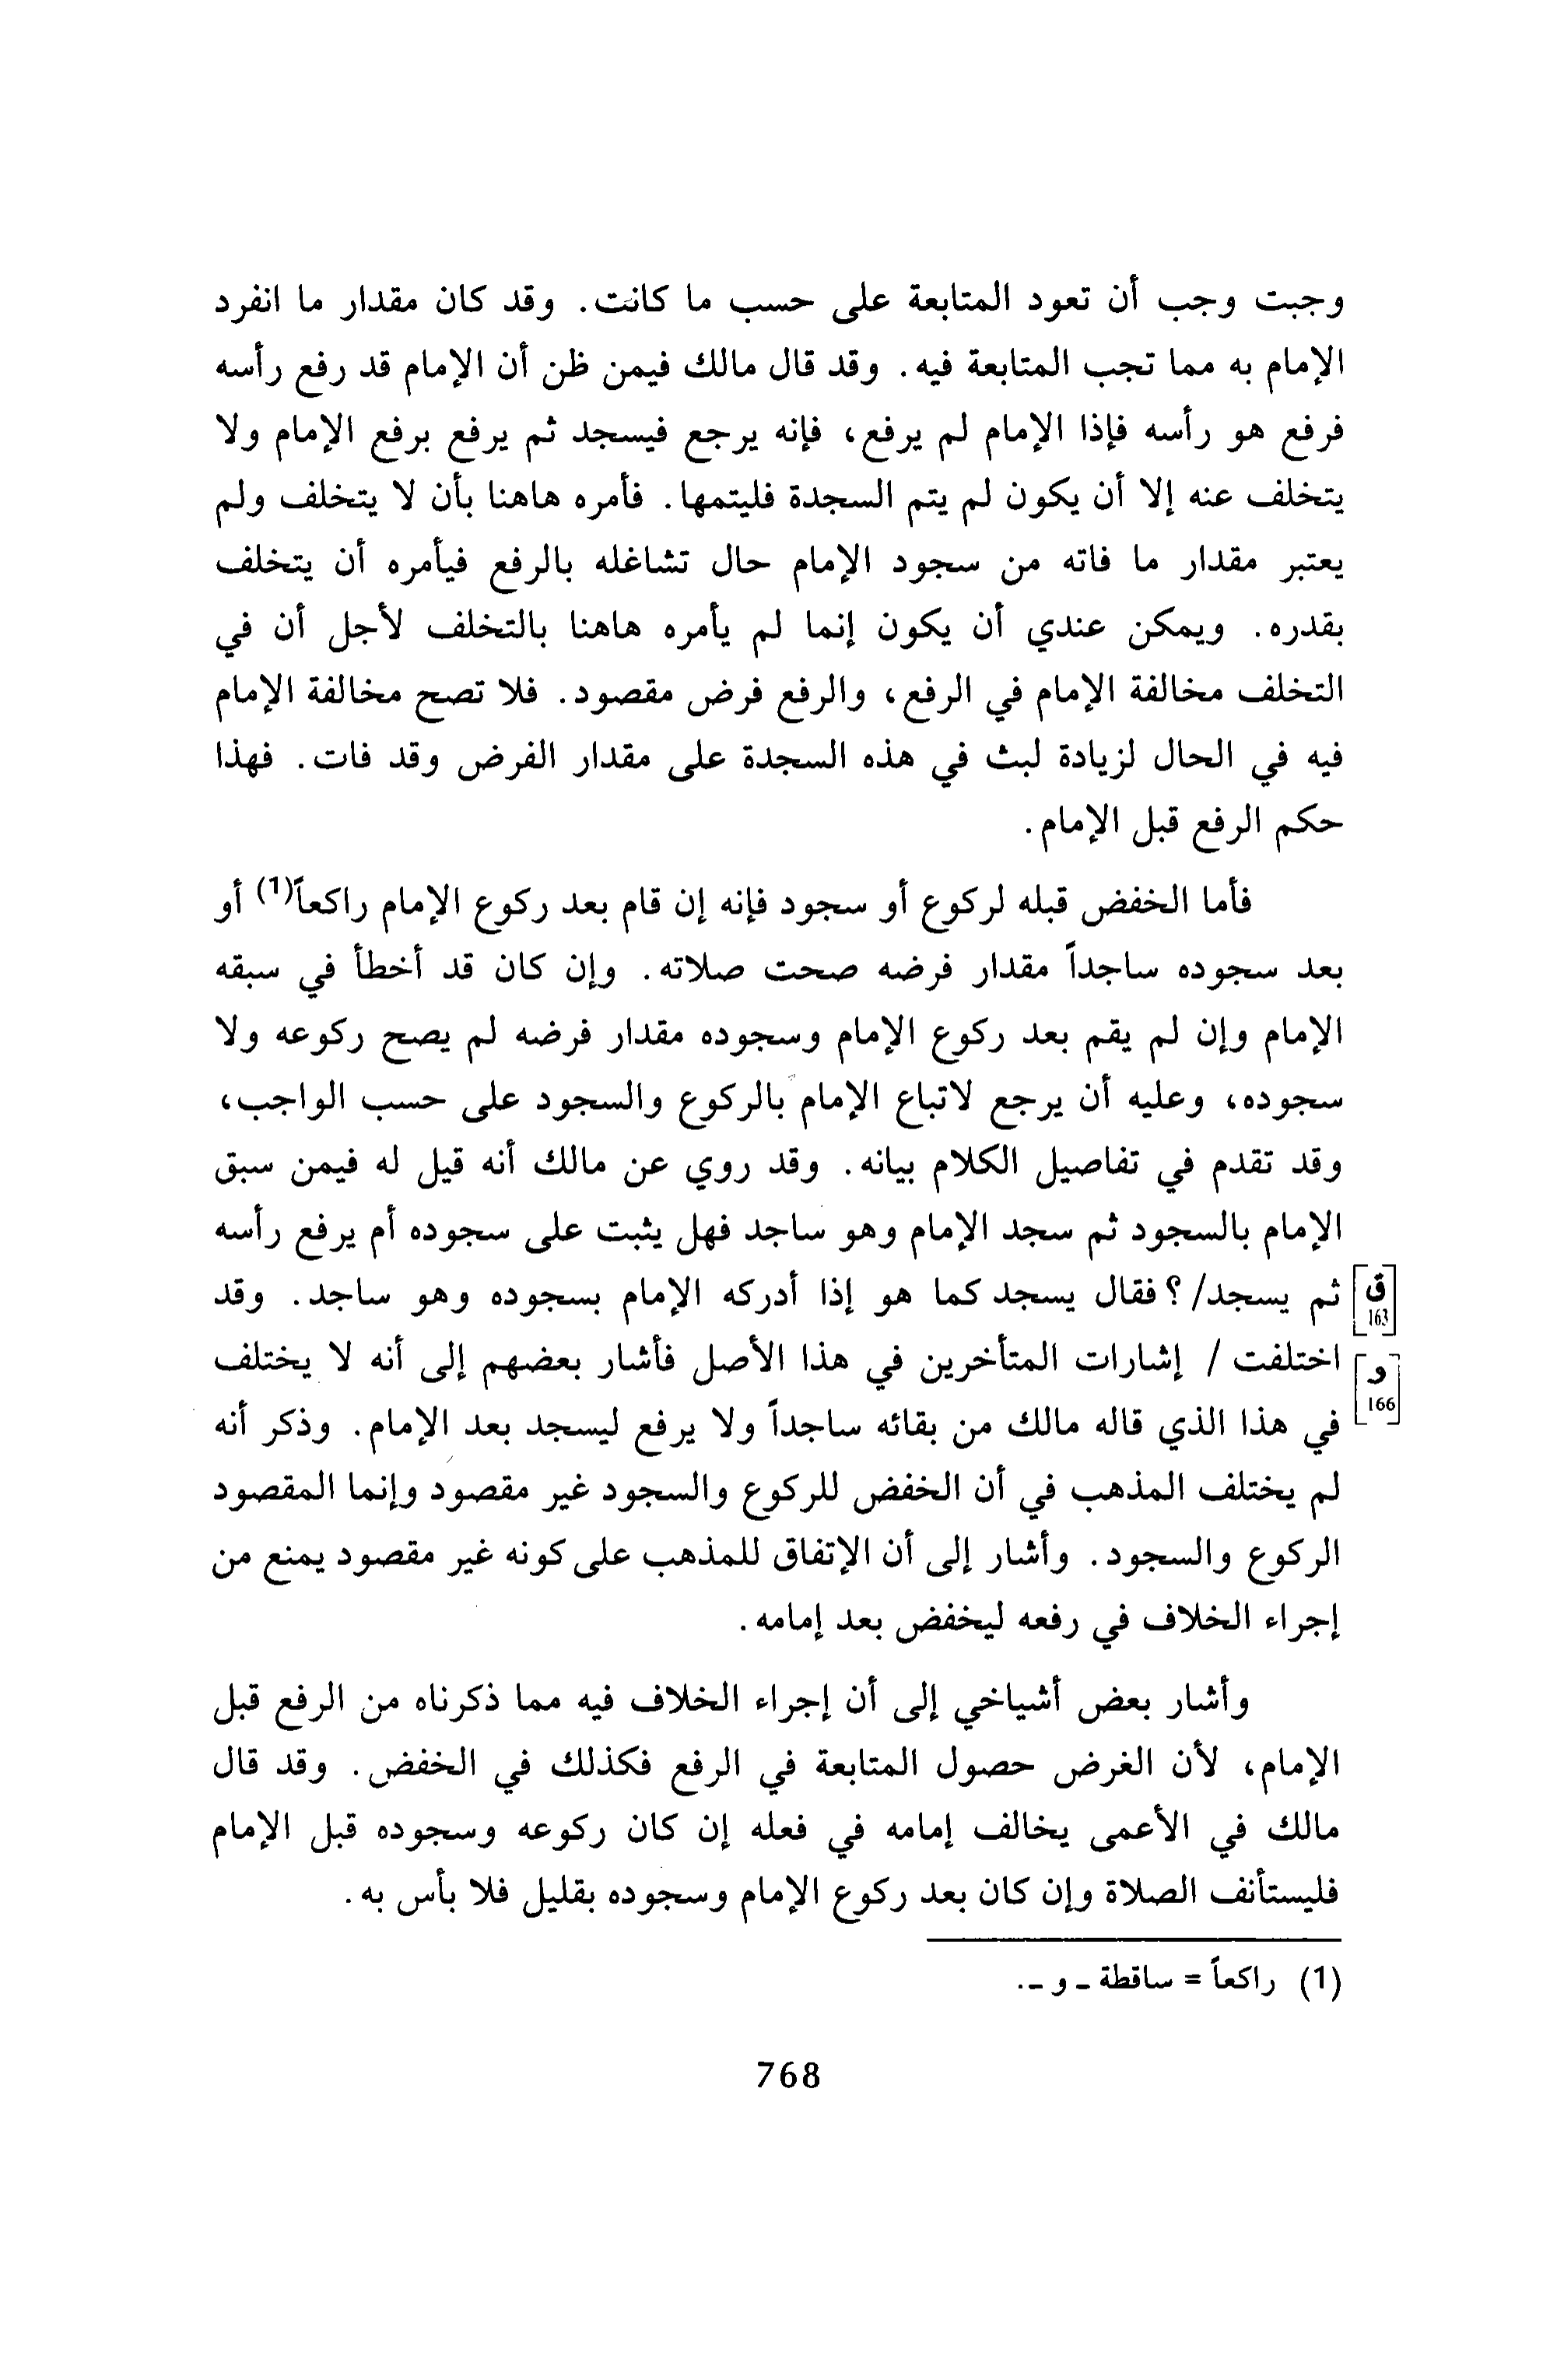 وجبت وجب أن تعود المتابعة على حسب ما كانت. وقد كان مقدار ما انفرد
الإمام به مما تجب المتابعة فيه. وقد قال مالك فيمن ظن أن الإمام قد رفع رأسه
فرفع هو رأسه فإذا الإمام لم يرفع، فإنه يرجع فيسجد ثم يرفع برفع الإمام ولا
يتخلف عنه إلا أن يكون لم يتم السجدة فليتمها. فأمره هاهنا بأن لا يتخلف ولم
يعتبر مقدار ما فاته من سجود الإمام حال تشاغله بالرفع فيأمره أن يتخلف
بقدره. ويمكن عندي أن يكون إنما لم يأمره هاهنا بالتخلف لأجل أن في
التخلف مخالفة الإمام في الرفع، والرفع فرض مقصود. فلا تصح مخالفة الإمام
فيه في الحال لزيادة لبث في هذه السجدة على مقدار الفرض وقد فات. فهذا
حكم الرفع قبل الإمام.
فأما الخفض قبله لركوع أو سجود فإنه إن قام بعد ركوع الإمام راكعاً(1) أو
بعد سجوده ساجداً مقدار فرضه صحت صلاته. وإن كان قد أخطأ في سبقه
الإمام وإن لم يقم بعد ركوع الإمام وسجوده مقدار فرضه لم يصح ركوعه ولا
سجوده، وعليه أن يرجع لاتباع الإمام بالركوع والسجود على حسب الواجب،
وقد تقدم في تفاصيل الكلام بيانه. وقد روي عن مالك أنه قيل له فيمن سبق
الإمام بالسجود ثم سجد الإمام وهو ساجد فهل يثبت على سجوده أم يرفع رأسه
ثم يسجد/؟ فقال يسجد كما هو إذا أدركه الإمام بسجوده وهو ساجد. وقد
[ق 163]
اختلفت / إشارات المتأخرين في هذا الأصل فأشار بعضهم إلى أنه لا يختلف
[و 166]
في هذا الذي قاله مالك من بقائه ساجداً ولا يرفع ليسجد بعد الإمام. وذكر أنه
لم يختلف المذهب في أن الخفض للركوع والسجود غير مقصود وإنما المقصود
الركوع والسجود. وأشار إلى أن الإتفاق للمذهب على كونه غير مقصود يمنع من
إجراء الخلاف في رفعه ليخفض بعد إمامه.
وأشار بعض أشياخي إلى أن إجراء الخلاف فيه مما ذكرناه من الرفع قبل
الإمام، لأن الغرض حصول المتابعة في الرفع فكذلك في الخفض. وقد قال
مالك في الأعمى يخالف إمامه في فعله إن كان ركوعه وسجوده قبل الإمام
فليستأنف الصلاة وإن كان بعد ركوع الإمام وسجوده بقليل فلا بأس به.
(1) راكعاً = ساقطة ـ و ـ.
768